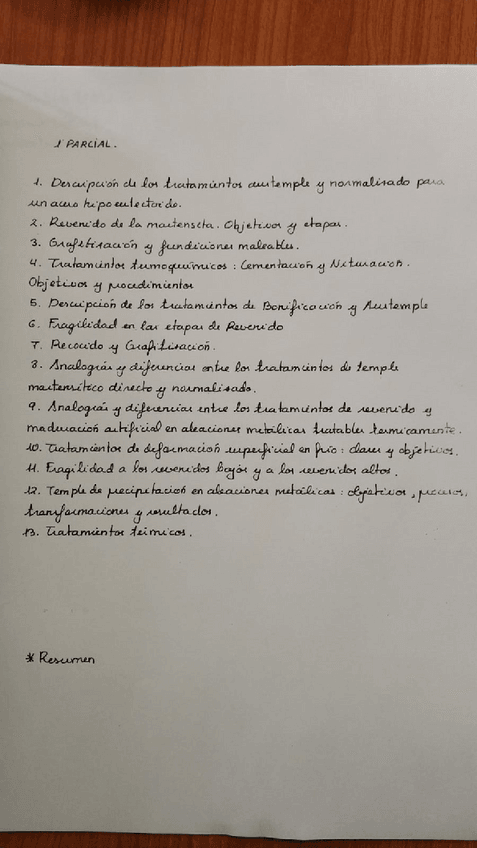 1 PARCIAL.
1. Descripción de los tratamientos austemple y normalizado para
un acero hipoeutectoide.
2. Revenido de la martensita. Objetivos y etapas.
3. Grafitización y fundiciones maleables.
4. Tratamientos termoquímicos: Cementación y Nituración.
Objetivos y procedimientos
5. Descripción de los tratamientos de Bonificación y Austemple
6. Fragilidad en las etapas de Revenido
7. Recocido y Grafitización.
8. Analogías y diferencias entre los tratamientos de temple
martensítico directo y normalizado.
9. Analogías y diferencias entre los tratamientos de revenido y
maduración artificial en aleaciones metálicas tratables termicamente.
10. Tratamientos de deformación superficial en frío: clases y objetivos.
11. Fragilidad a los revenidos bajos y a los revenidos altos.
12. Temple de precipitación en aleaciones metálicas: objetivos, proceso,
transformaciones y resultados.
13. Tratamientos térmicos.
* Resumen